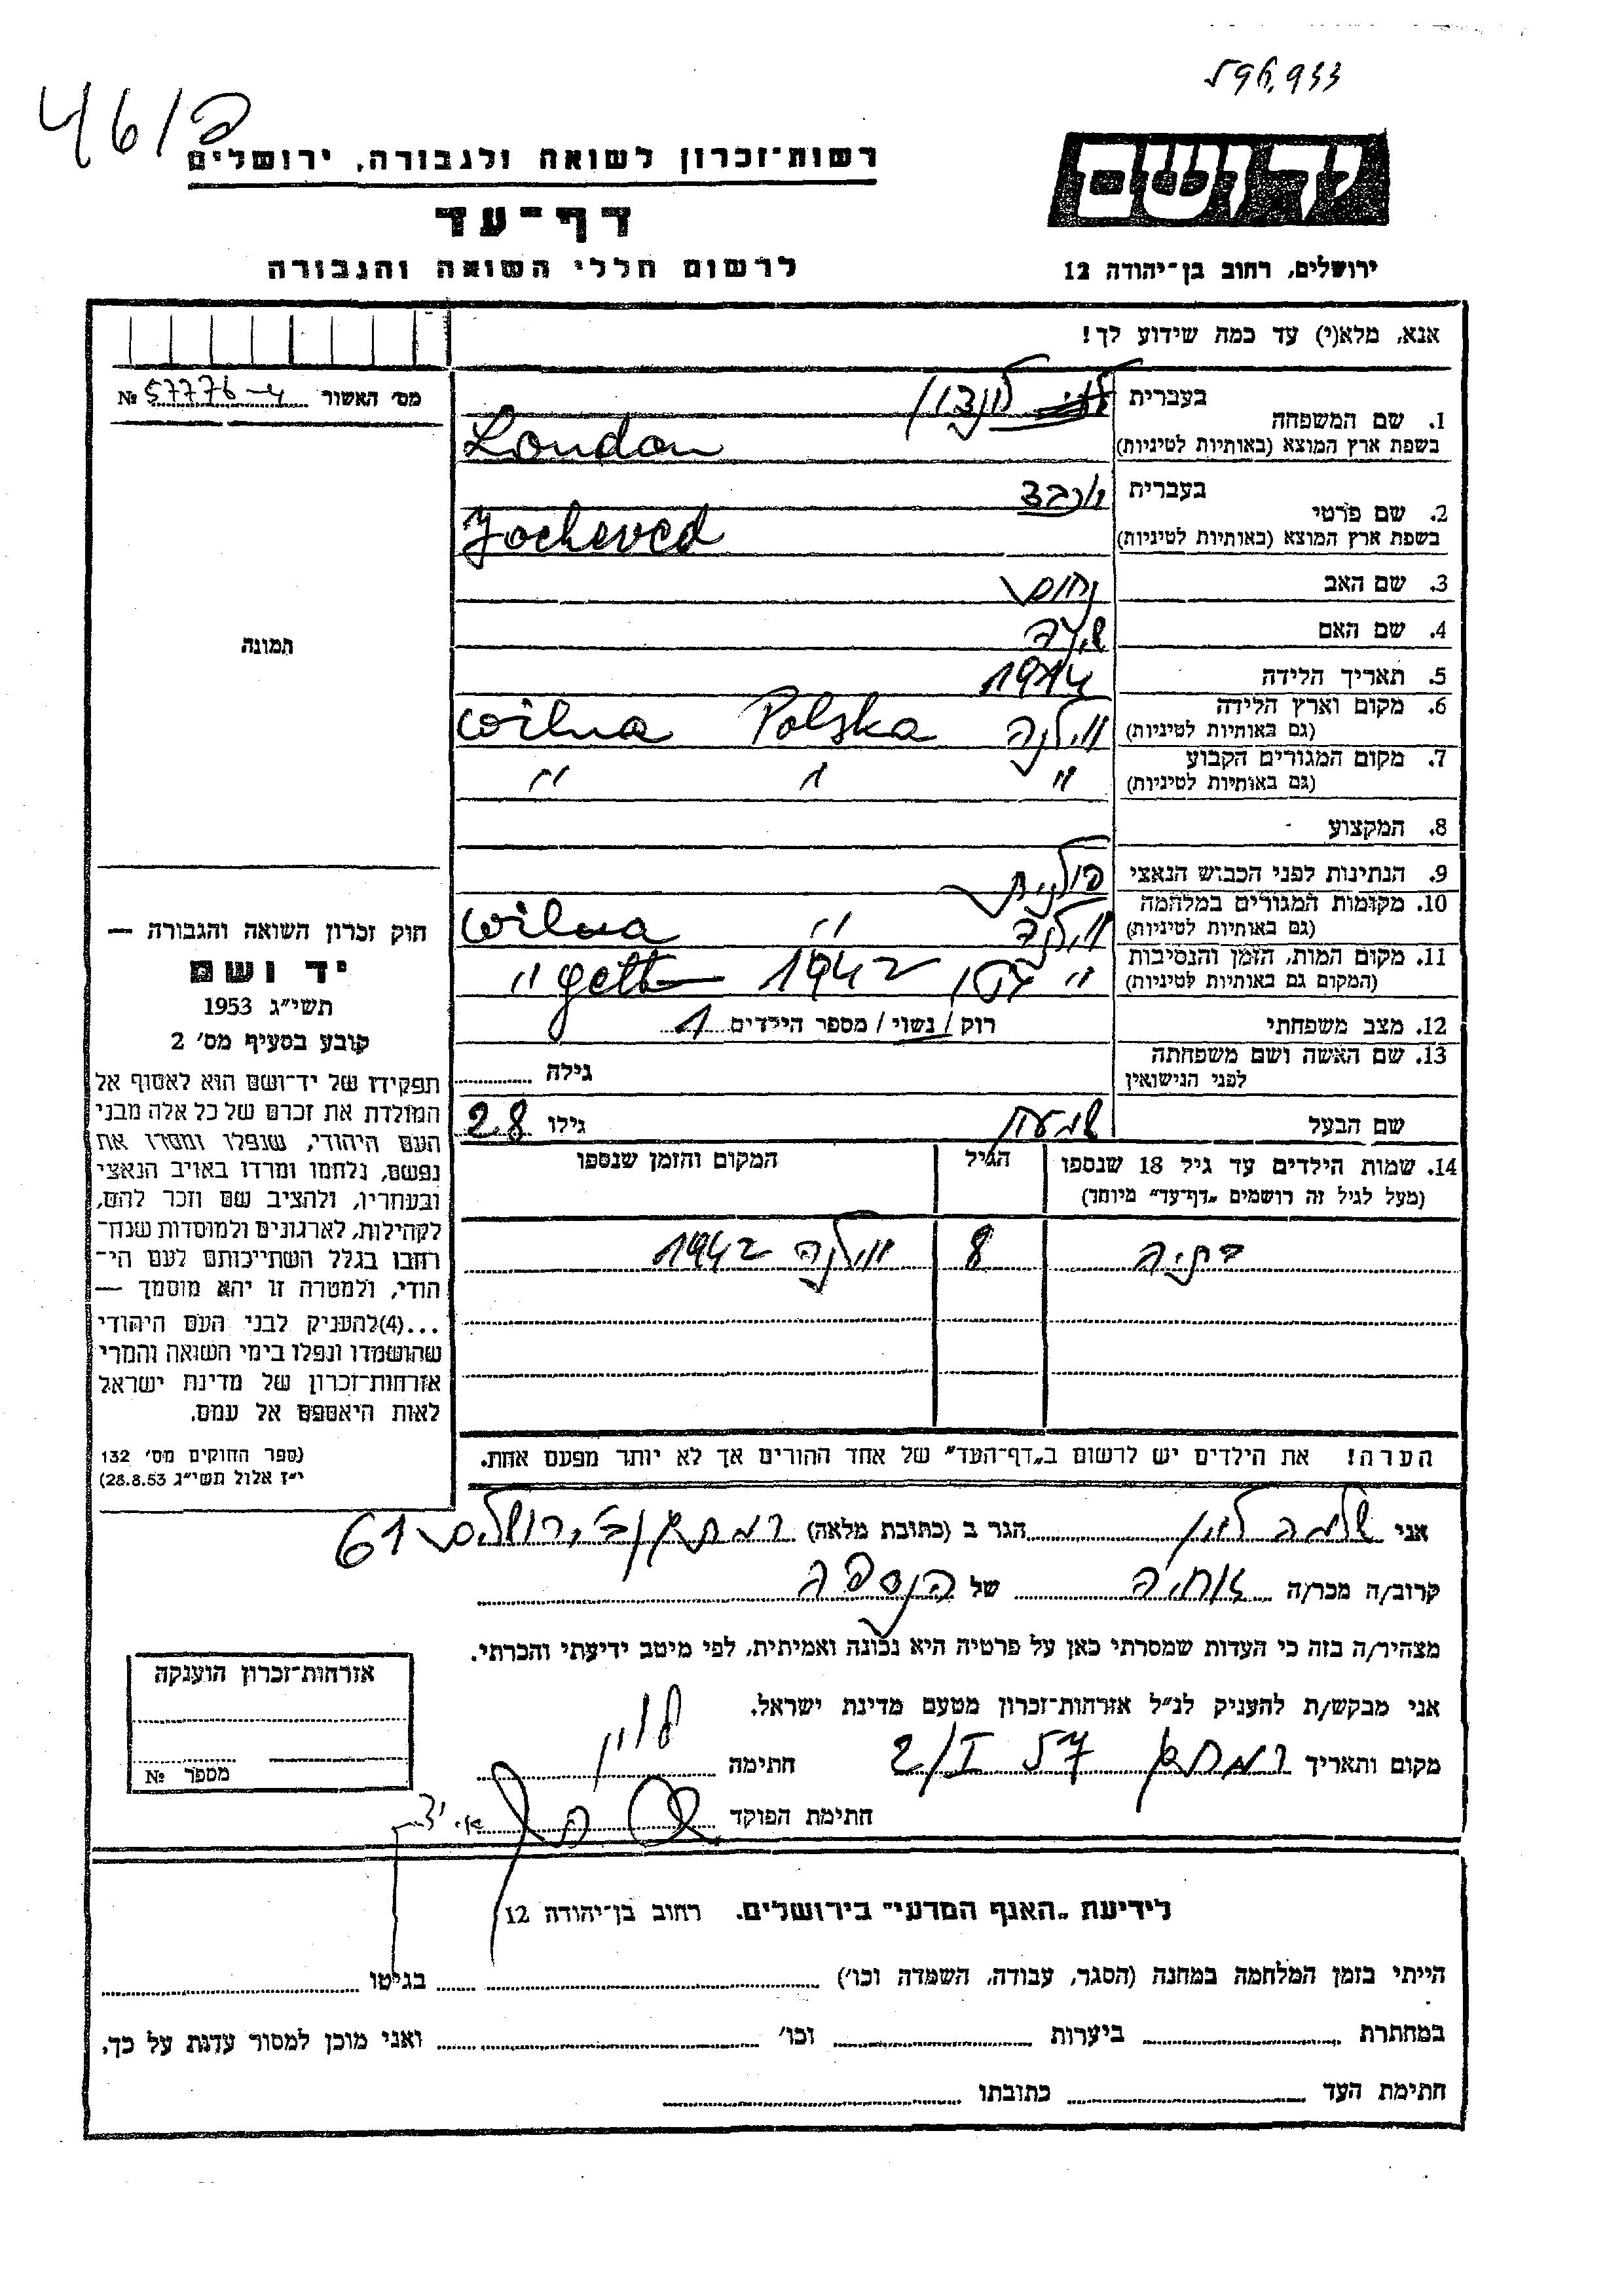 596,933
46/פ
רשות־זכרון לשואה ולגבורה, ירושלים
יד ושם
דף־עד
לרשום חללי השואה והגבורה
ירושלים, רחוב בן־יהודה 12
אנא, מלא(י) עד כמה שידוע לך!
מס׳ האשור № 57776-4
1. שם המשפחה
בעברית לונדון
בשפת ארץ המוצא (באותיות לטיניות) London
2. שם פרטי
בעברית יוכבד
בשפת ארץ המוצא (באותיות לטיניות) Jocheved
3. שם האב נחום
4. שם האם
5. תאריך הלידה 1914
6. מקום וארץ הלידה
(גם באותיות לטיניות) וילנה Polska Wilna
7. מקום המגורים הקבוע
(גם באותיות לטיניות) " " "
8. המקצוע
9. הנתינות לפני הכבוש הנאצי פולנית
10. מקומות המגורים במלחמה
(גם באותיות לטיניות) וילנה " Wilna
11. מקום המות, הזמן והנסיבות
(המקום גם באותיות לטיניות) " גטו 1942 " getto
12. מצב משפחתי רוק / נשוי / מספר הילדים 1
13. שם האשה ושם משפחתה
לפני הנישואין
גילה
שם הבעל שמעון גילו 28
14. שמות הילדים עד גיל 18 שנספו
(מעל לגיל זה רושמים „דף־עד" מיוחד)
הגיל
המקום והזמן שנספו
בתיה 8 וילנה 1942
הערה! את הילדים יש לרשום ב„דף־העד" של אחד ההורים אך לא יותר מפעם אחת.
תמונה
חוק זכרון השואה והגבורה —
יד ושם
תשי״ג 1953
קובע בסעיף מס׳ 2
תפקידו של יד־ושם הוא לאסוף אל
המולדת את זכרם של כל אלה מבני
העם היהודי, שנפלו ומסרו את
נפשם, נלחמו ומרדו באויב הנאצי
ובעוזריו, ולהציב שם וזכר להם,
לקהילות, לארגונים ולמוסדות שנח־
רבו בגלל השתייכותם לעם הי־
הודי, ולמטרה זו יהא מוסמך —
...(4)להעניק לבני העם היהודי
שהושמדו ונפלו בימי השואה והמרי
אזרחות־זכרון של מדינת ישראל
לאות היאספם אל עמם.
(ספר החוקים מס׳ 132
י״ז אלול תשי״ג 28.8.53)
אני שלמה לוין הגר ב (כתובת מלאה) רמת גן ירושלים 61
קרוב/ה מכר/ה אחיה של הנספה
מצהיר/ה בזה כי העדות שמסרתי כאן על פרטיה היא נכונה ואמיתית, לפי מיטב ידיעתי והכרתי.
אני מבקש/ת להעניק לנ״ל אזרחות־זכרון מטעם מדינת ישראל.
מקום ותאריך רמת גן 2/I 57 חתימה לוין
חתימת הפוקד
אזרחות־זכרון הוענקה
מספר №
לידיעת „האגף המדעי" בירושלים. רחוב בן־יהודה 12
הייתי בזמן המלחמה במחנה (הסגר, עבודה, השמדה וכו׳) בגיטו
במחתרת ביערות וכו׳ ואני מוכן למסור עדות על כך,
חתימת העד כתובתו